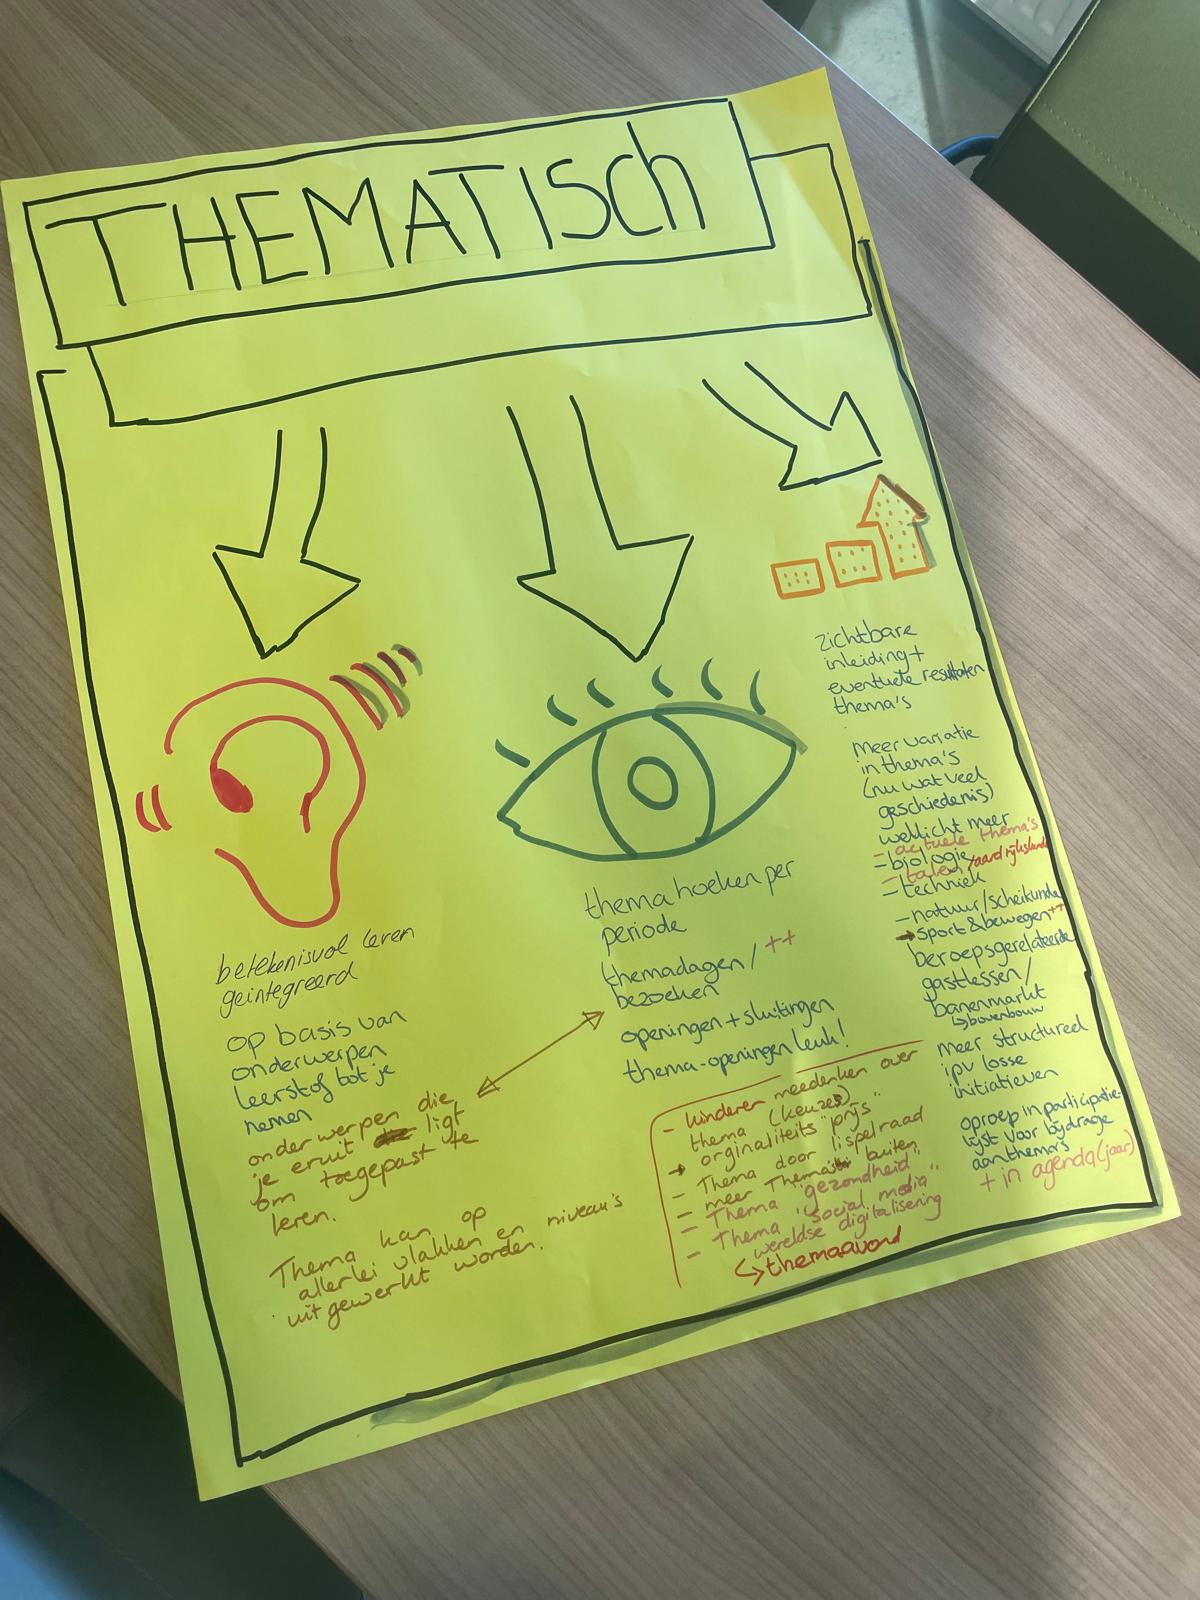 THEMATISch
betekenisvol leren
geïntegreerd
op basis van
onderwerpen
leerstof tot je
nemen
onderwerpen die
je eruit ligt
om toegepast te
leren.
Thema kan op
allerlei vlakken en niveau's
uitgewerkt worden.
thema hoeken per
periode
themadagen / ++
bezoeken
openingen + sluitingen
thema-openingen leuk!
- kinderen meedenken over
thema (keuzes)
→ orginaliteits "prijs"
- Thema door lispelraad
- meer Thema buiten
- Thema "gezondheid"
- Thema "social media"
- wereldse digitalisering
↳ themaavond
zichtbare
inleiding +
eventuele resultaten
thema's
Meer variatie
in thema's
(nu wat veel
geschiedenis)
wellicht meer
- actuele thema's
- biologie
- talen / aardrijkskunde
- techniek
- natuur/scheikunde
→ sport & bewegen ++
beroepsgerelateerde
gastlessen /
banenmarkt
↳ bovenbouw
meer structureel
ipv losse
initiatieven
oproep in participatie-
lijst voor bijdrage
aan thema's
+ in agenda (jaar)